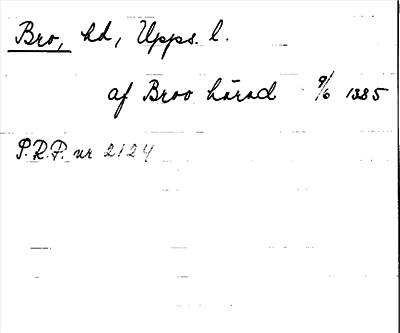 Bro, hd, Upps. l.
af Broo härad 9/6 1385
P.R.P. nr 2124